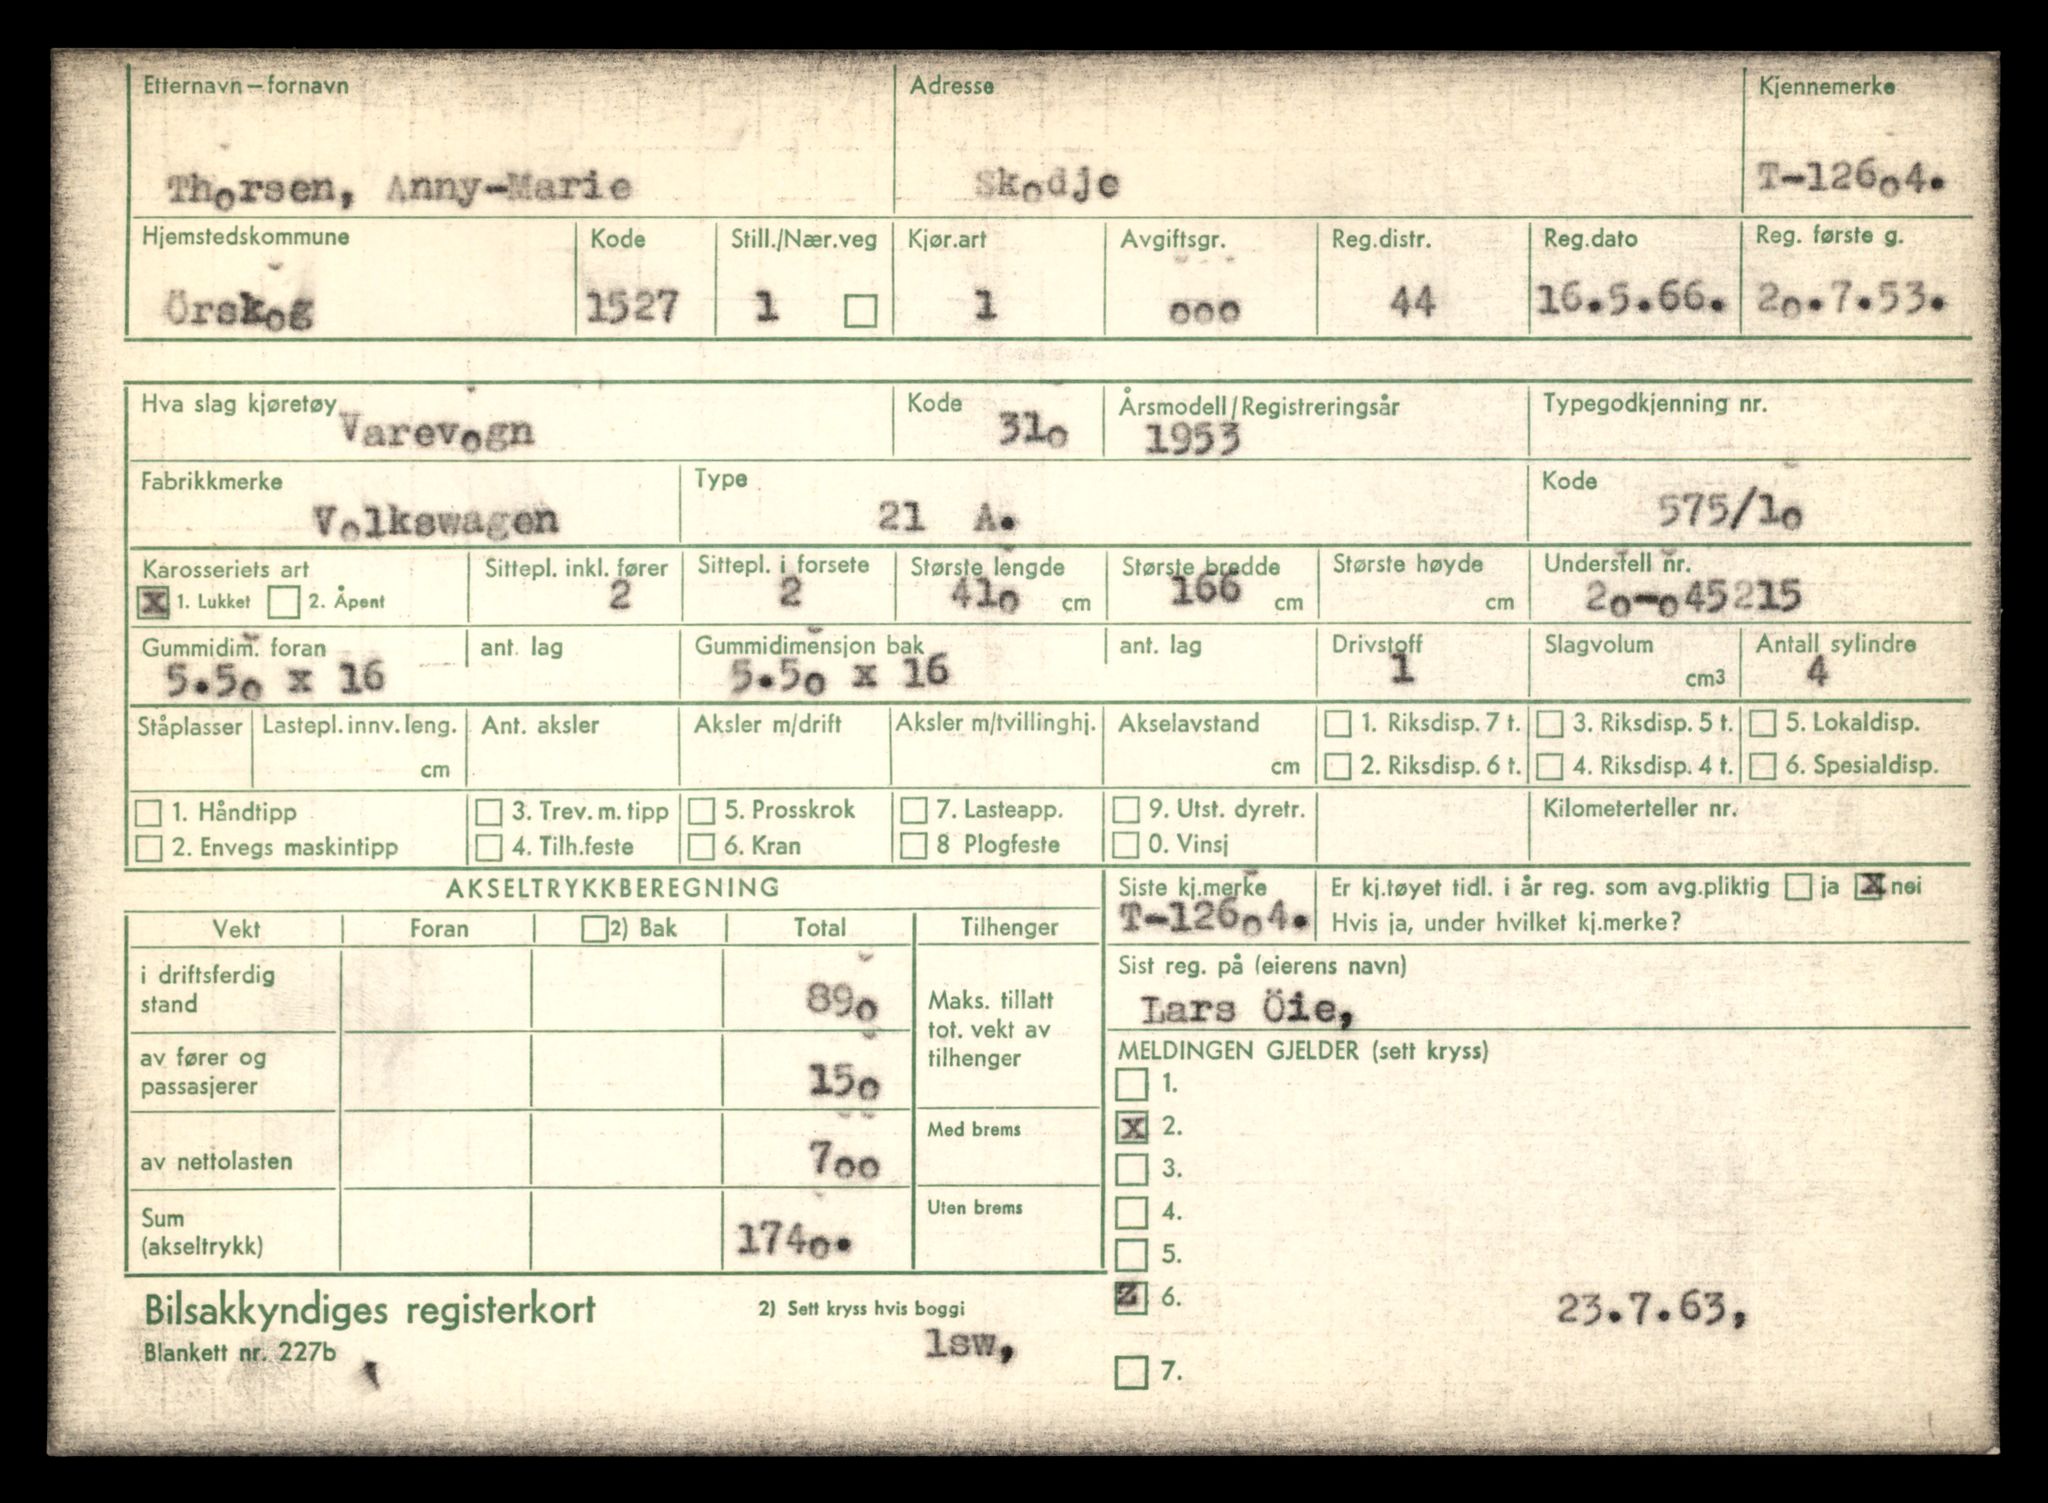 Etternavn – fornavn Adresse Kjennemerke
Thorsen, Anny-Marie Skodje T-12604.
Hjemstedskommune Kode Still./Nær.veg Kjør.art Avgiftsgr. Reg.distr. Reg.dato Reg. første g.
Örskog 1527 1 1 000 44 16.5.66. 20.7.53.
Hva slag kjøretøy Kode Årsmodell/Registreringsår Typegodkjenning nr.
Varevogn 310 1953
Fabrikkmerke Type Kode
Volkswagen 21 A. 575/10
Karosseriets art Sittepl. inkl. fører Sittepl. i forsete Største lengde Største bredde Største høyde Understell nr.
X 1. Lukket 2. Åpent 2 2 410 cm 166 cm cm 20-045215
Gummidim. foran ant. lag Gummidimensjon bak ant. lag Drivstoff Slagvolum Antall sylindre
5.50 x 16 5.50 x 16 1 cm3 4
Ståplasser Lastepl. innv. leng. Ant. aksler Aksler m/drift Aksler m/tvillinghj. Akselavstand 1. Riksdisp. 7 t. 3. Riksdisp. 5 t. 5. Lokaldisp.
cm cm 2. Riksdisp. 6 t. 4. Riksdisp. 4 t. 6. Spesialdisp.
1. Håndtipp 3. Trev. m. tipp 5. Prosskrok 7. Lasteapp. 9. Utst. dyretr. Kilometerteller nr.
2. Envegs maskintipp 4. Tilh.feste 6. Kran 8 Plogfeste 0. Vinsj
AKSELTRYKKBEREGNING
Vekt Foran 2) Bak Total Tilhenger
i driftsferdig
stand 890
av fører og
passasjerer 150
av nettolasten 700
Sum
(akseltrykk) 1740.
Maks. tillatt
tot. vekt av
tilhenger
Med brems
Uten brems
Siste kj.merke Er kj.tøyet tidl. i år reg. som avg.pliktig ja X nei
T-12604. Hvis ja, under hvilket kj.merke?
Sist reg. på (eierens navn)
Lars Öie,
MELDINGEN GJELDER (sett kryss)
1.
X 2.
3.
4.
5.
Z 6. 23.7.63,
7.
Bilsakkyndiges registerkort 2) Sett kryss hvis boggi
Blankett nr. 227b lsw,